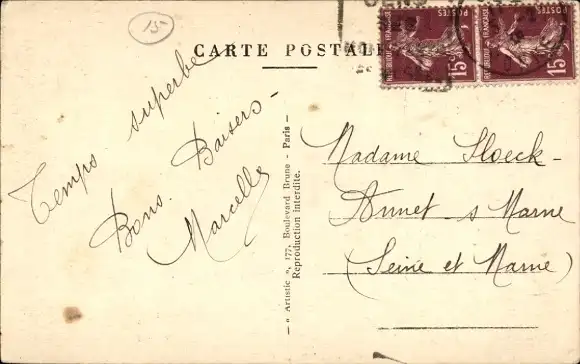 15-
CARTE POSTALE
POSTES
REPUBLIQUE FRANÇAISE
15c
POSTES
REPUBLIQUE FRANÇAISE
15c
Temps superbe
Bons Baisers -
Marcelle
— « Artistic », 177, Boulevard Brune - Paris —
Reproduction interdite.
Madame Hoeck -
Annet s Marne
(Seine et Marne)